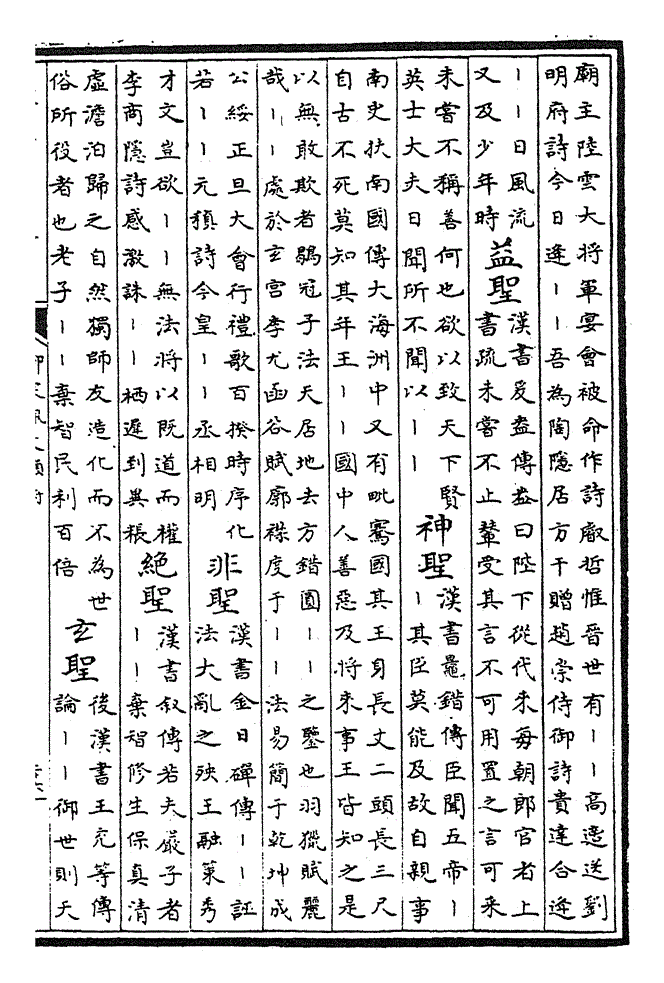 廟王陸雲大將軍宴會被命作詩叡哲惟晉世有丨丨高適送劉
明府詩今日逢丨丨吾為陶隱居方干贈趙崇侍御詩貴達合逢
丨丨日風流
又及少年時
益聖
漢書爰盎傳盎曰陛下從代来每朝郎官者上
書疏未嘗不止輦受其言不可用置之言可来
未嘗不稱善何也欲以致天下賢
英士大夫日聞所不聞以丨丨
神聖
漢書鼂錯傳臣聞五帝丨
丨其臣莫能及故自親事
南史扶南國傳大海洲中又有毗騫國其王身長丈二頭長三尺
自古不死莫知其年王丨丨國中人善惡及將来事王皆知之是
以無敢欺者鶡冠子法天居地去方錯圓丨丨之鑒也羽獵賦麗
哉丨丨處於玄宫李尤函谷賦廓襟度于丨丨法易簡于乾坤成
公綏正旦大會行禮歌百揆時序化
若丨丨元稹詩今皇丨丨丞相明
非聖
漢書金日磾傳丨丨誣
法大亂之殃王融策秀
才文豈欲丨丨無法將以既道而權
李商隱詩感激誅丨丨栖遲到異粻
絕聖
漢書叙傳若夫嚴子者
丨丨棄智修生保真清
虛澹泊歸之自然獨師友造化而不為世
俗所役者也老子丨丨棄智民利百倍
玄聖
後漢書王充等傳
論丨丨御世則天